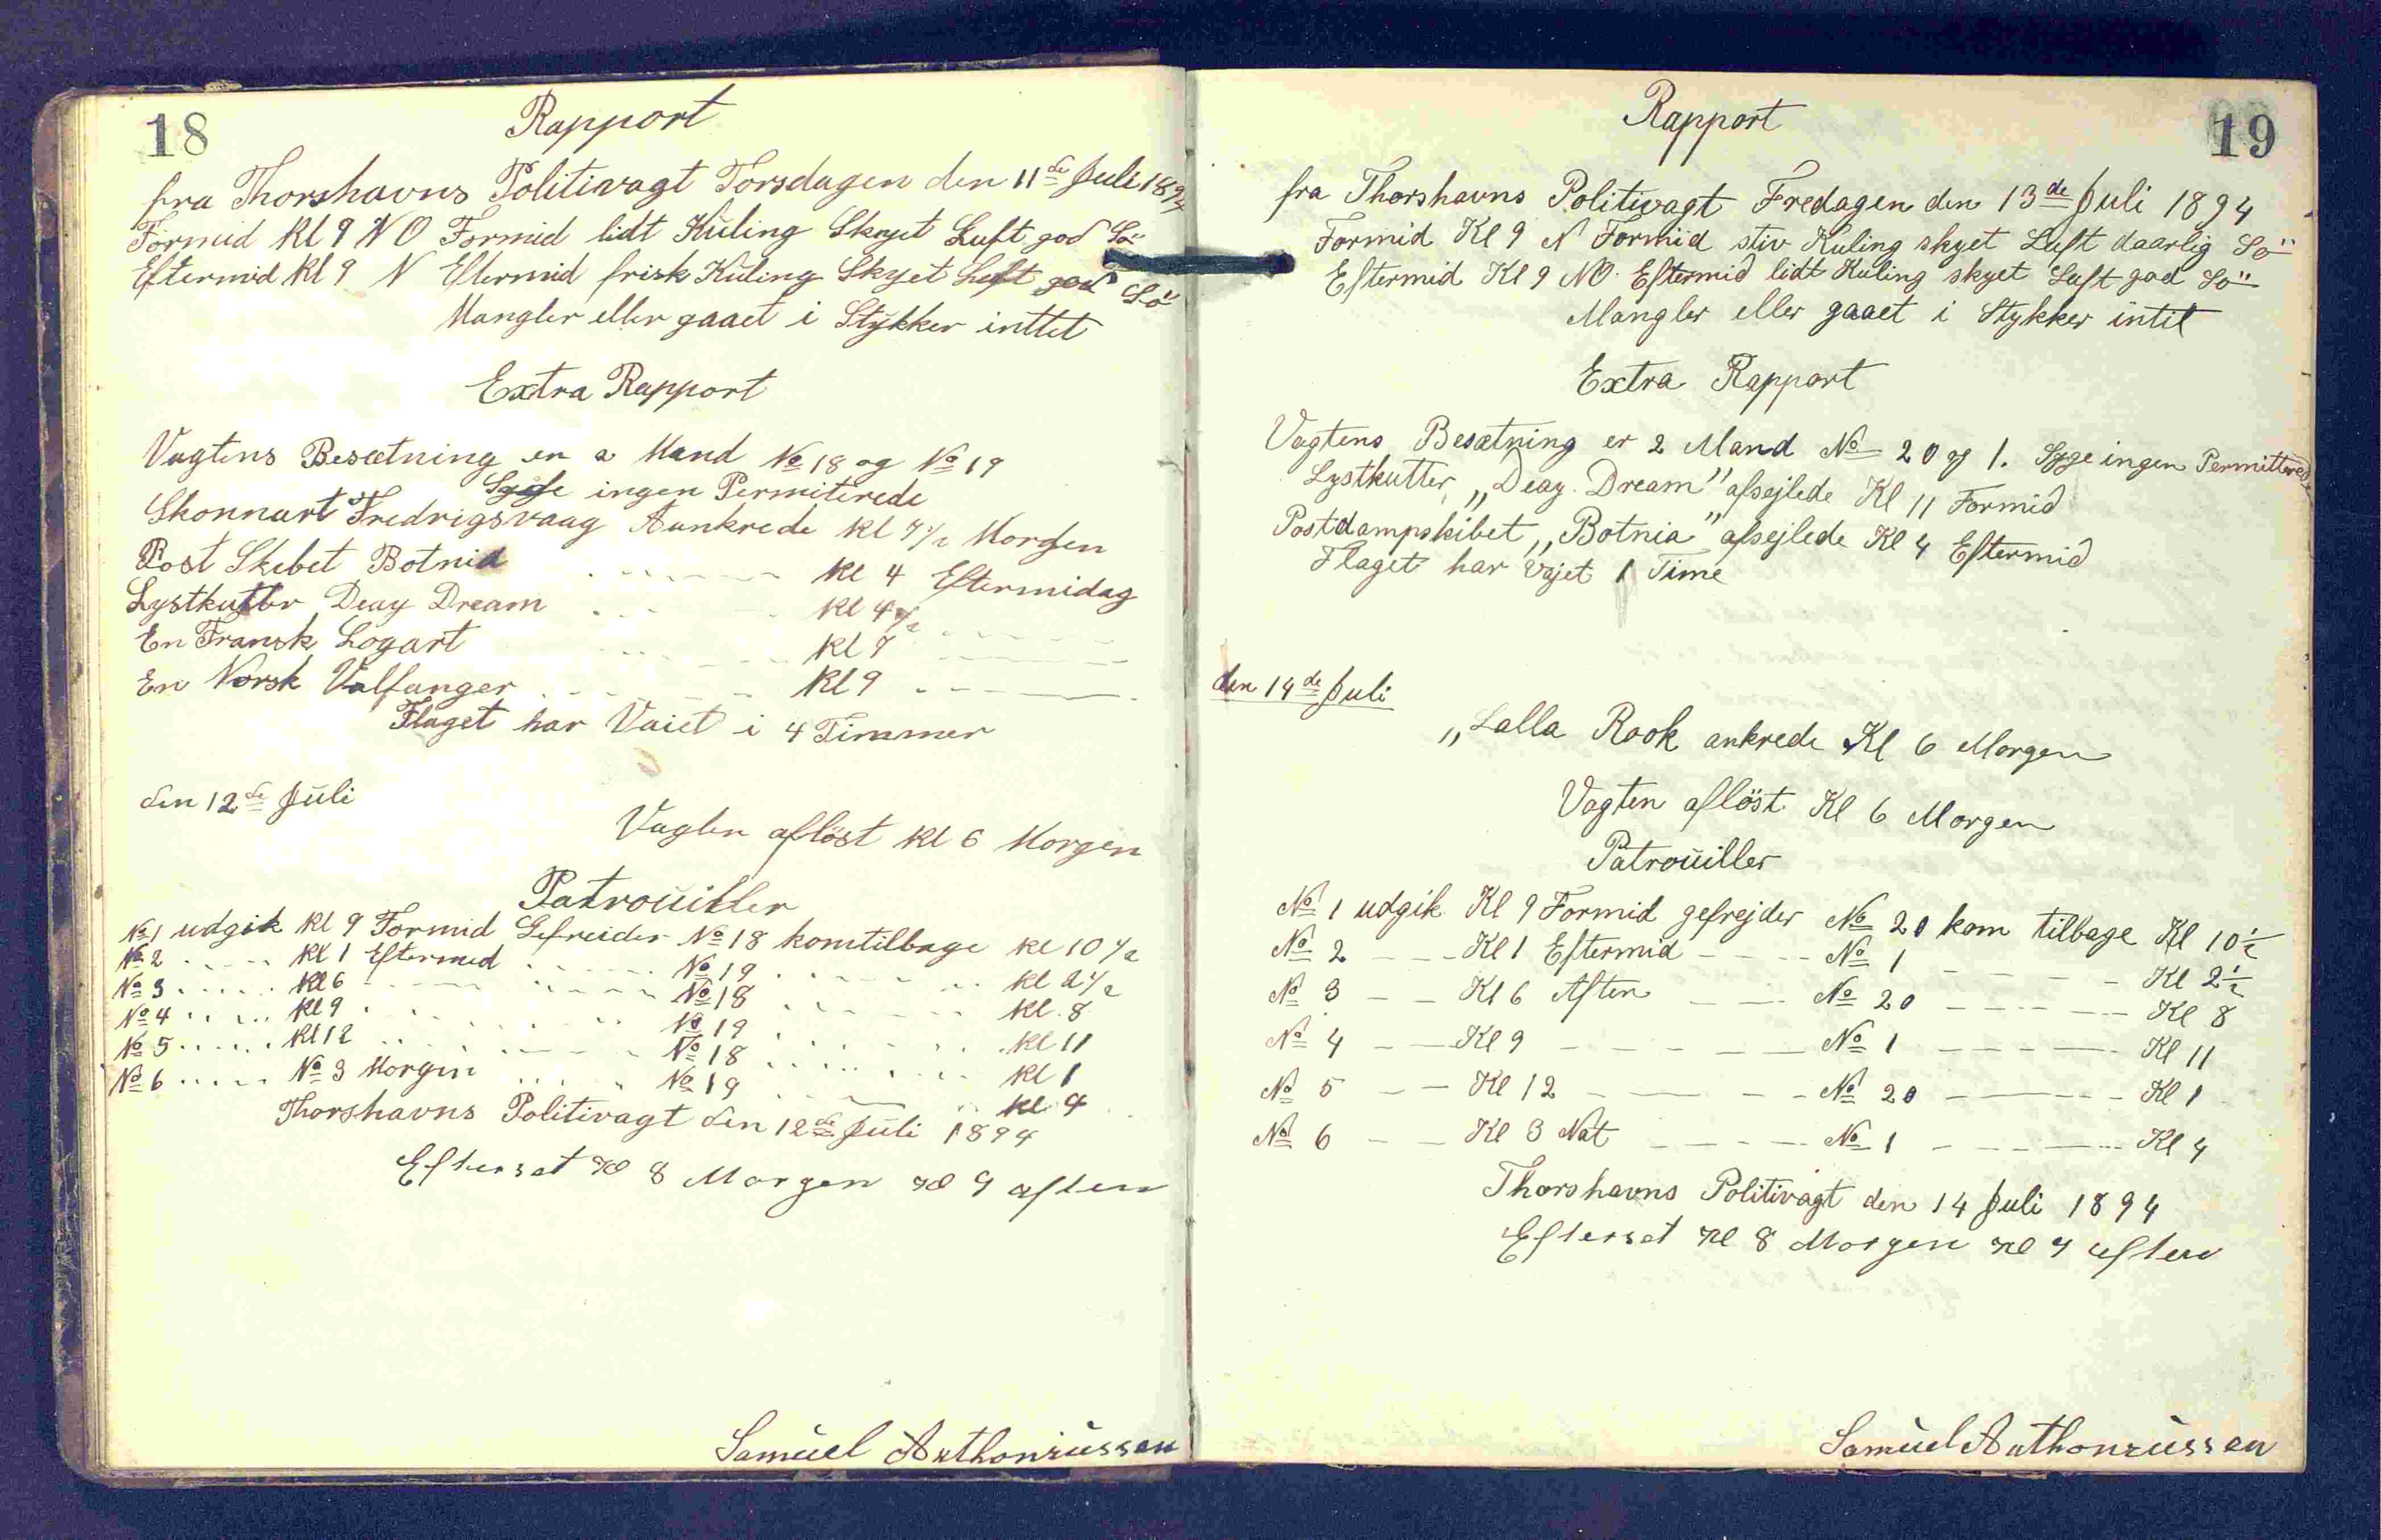 18
Rapport
fra Thorshavns Politivagt Torsdagen den 11de Juli 1894
Formid Kl 9 NO Formid lidt Kuling Skyet Luft god Sö
Eftermid Kl 9 N Eftermid frisk Kuling Skyet Luft god Sö
Mangler eller gaaet i Stykker inttet
Extra Rapport
Vagtens Besætning er 2 Mand No 18 og No 19
Syge ingen Permiterede
Skonnart Fredrigsvaag Aankrede kl 7 1/2 Morgen
Post Skibet Botnia - - - - kl 4 Eftermidag
Lystkutter Deay Dream - - - kl 4 1/2 - - - -
En Fransk Logart - - - - kl 7 - - - -
En Norsk Valfanger - - - - kl 9 - - - -
Flaget har Vaiet i 4 Timmer
den 12de Juli
Vagten aflöst kl 6 Morgen
Patrouiller
No 1 udgik kl 9 Formid Gefreider No 18 komtilbage kl 10 1/2
No 2 - - - - kl 1 Eftermed - - - - No 19 - - - - kl 2 1/2
No 3 - - - - kl 6 - - - - No 18 - - - - kl. 8
No 4 - - - - kl 9 - - - - No 19 - - - - kl 11
No 5 - - - - kl 12 - - - - No 18 - - - - kl 1
No 6 - - - - No 3 Morgen - - - - No 19 - - - - kl 4
Thorshavns Politivagt den 12de Juli 1894
Efterset Kl 8 Morgen Kl 9 aften
Samuel Anthoniussen
19
Rapport
fra Thorshavns Politivagt Fredagen den 13de Juli 1894
Formid Kl 9 N Formid stiv Kuling skyet Luft daarlig Sö
Eftermid Kl 9 NO. Eftermid lidt Kuling skyet Luft god Sö
Mangler eller gaaet i Stykker intet
Extra Rapport
Vagtens Besætning er 2 Mand No 20 og 1. Syge ingen Permitterede
Lystkutter „Deay Dream" afsejlede Kl 11 Formid
Postdampskibet „Botnia" afsejlede Kl 4 Eftermid
Flaget har Vajet 1 Time
den 14de Juli
„Lalla Rook ankrede Kl 6 Morgen
Vagten aflöst Kl 6 Morgen
Patrouiller
No 1 udgik Kl 9 Formid gefrejder No 20 kom tilbage Kl 10 1/2
No 2 - - - Kl 1 Eftermid - - - - No 1 - - - - Kl 2 1/2
No 3 - - Kl 6 Aften - - - No 20 - - - - Kl 8
No 4 - - Kl 9 - - - - No 1 - - - - Kl 11
No 5 - - Kl 12 - - - - No 20 - - - - Kl 1
No 6 - - Kl 3 Nat - - - - No 1 - - - - Kl 4
Thorshavns Politivagt den 14 Juli 1894
Efterset Kl 8 Morgen Kl 9 aften
Samuel Anthoniussen